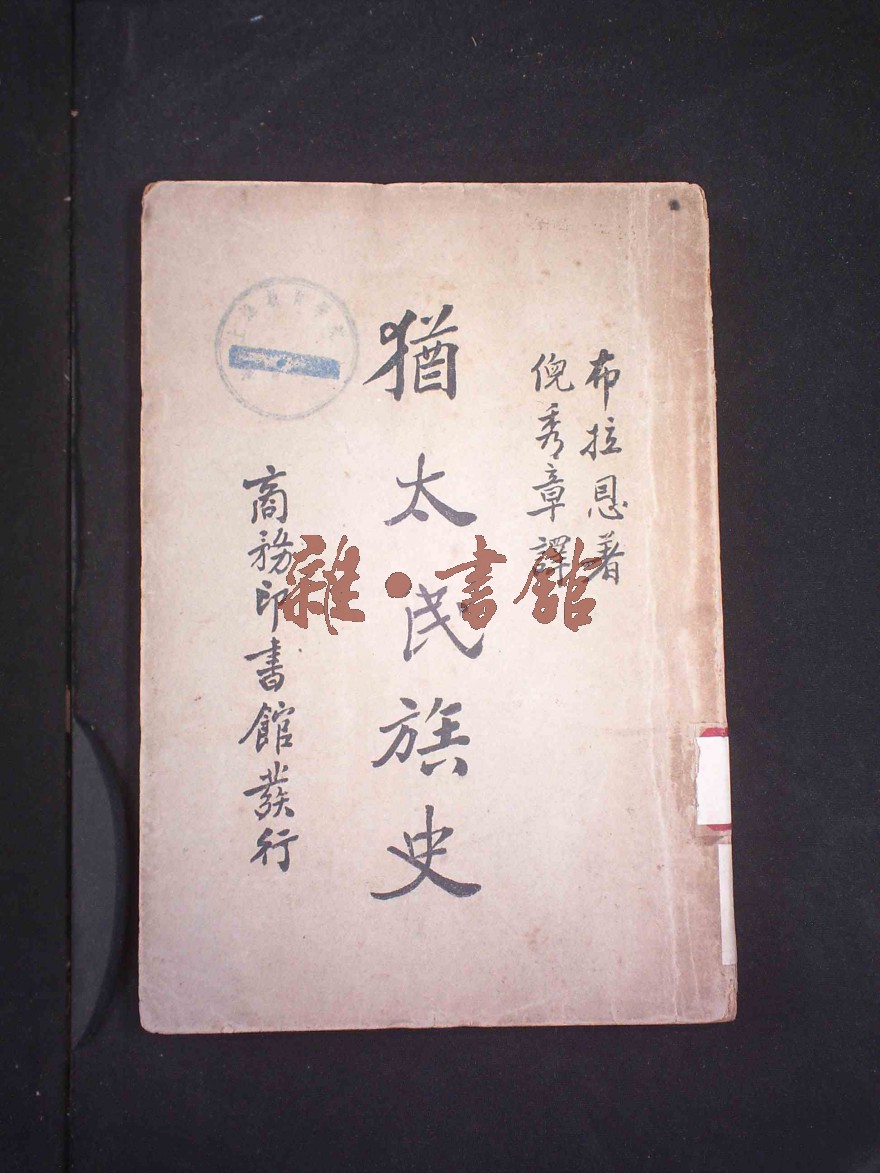 布拉恩著
倪秀章譯
猶太民族史
商務印書館發行
雜·書館